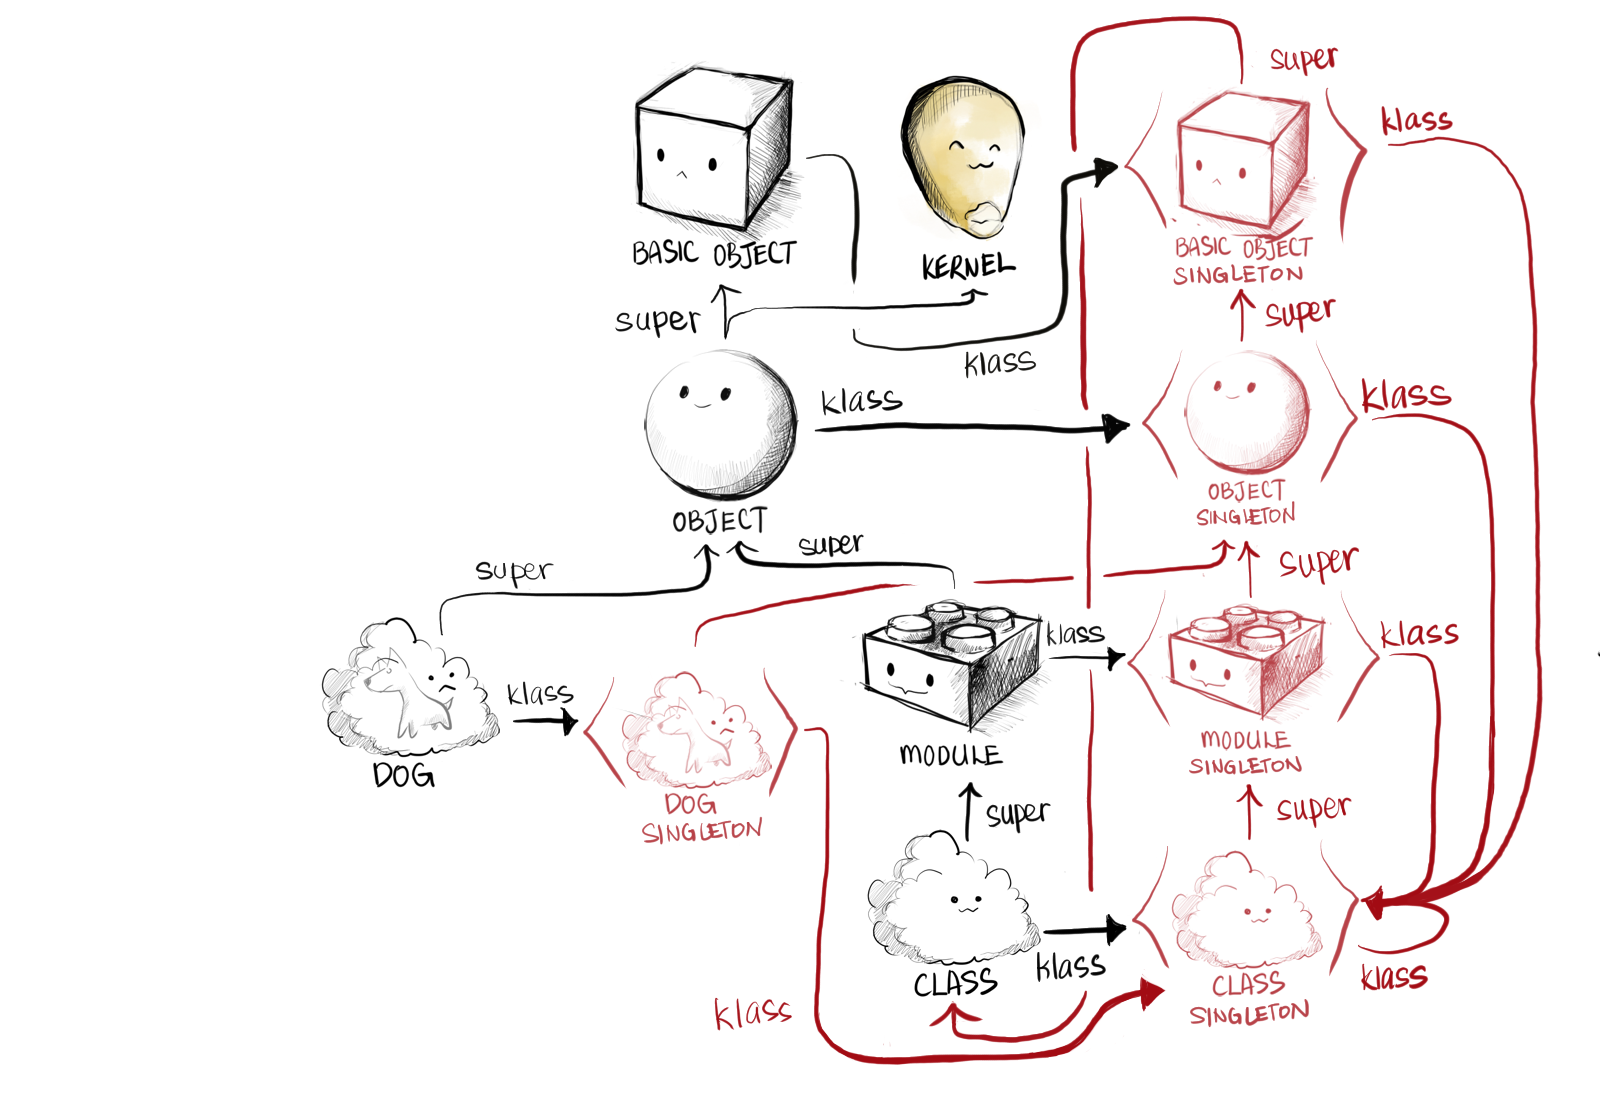 super
klass
BASIC OBJECT
KERNEL
BASIC OBJECT
SINGLETON
super
super
klass
klass
klass
OBJECT
OBJECT
SINGLETON
super
super
super
klass
klass
klass
DOG
MODULE
MODULE
SINGLETON
DOG
SINGLETON
super
super
klass
CLASS
klass
CLASS
SINGLETON
klass